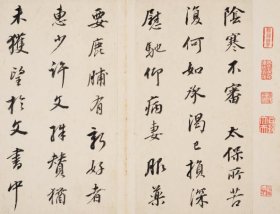 陰寒不審太保所苦
復何如承渴已損深
慰馳仰病妻服藥
要鹿脯有新好者
惠少許文殊贊猶
未獲望於文書中